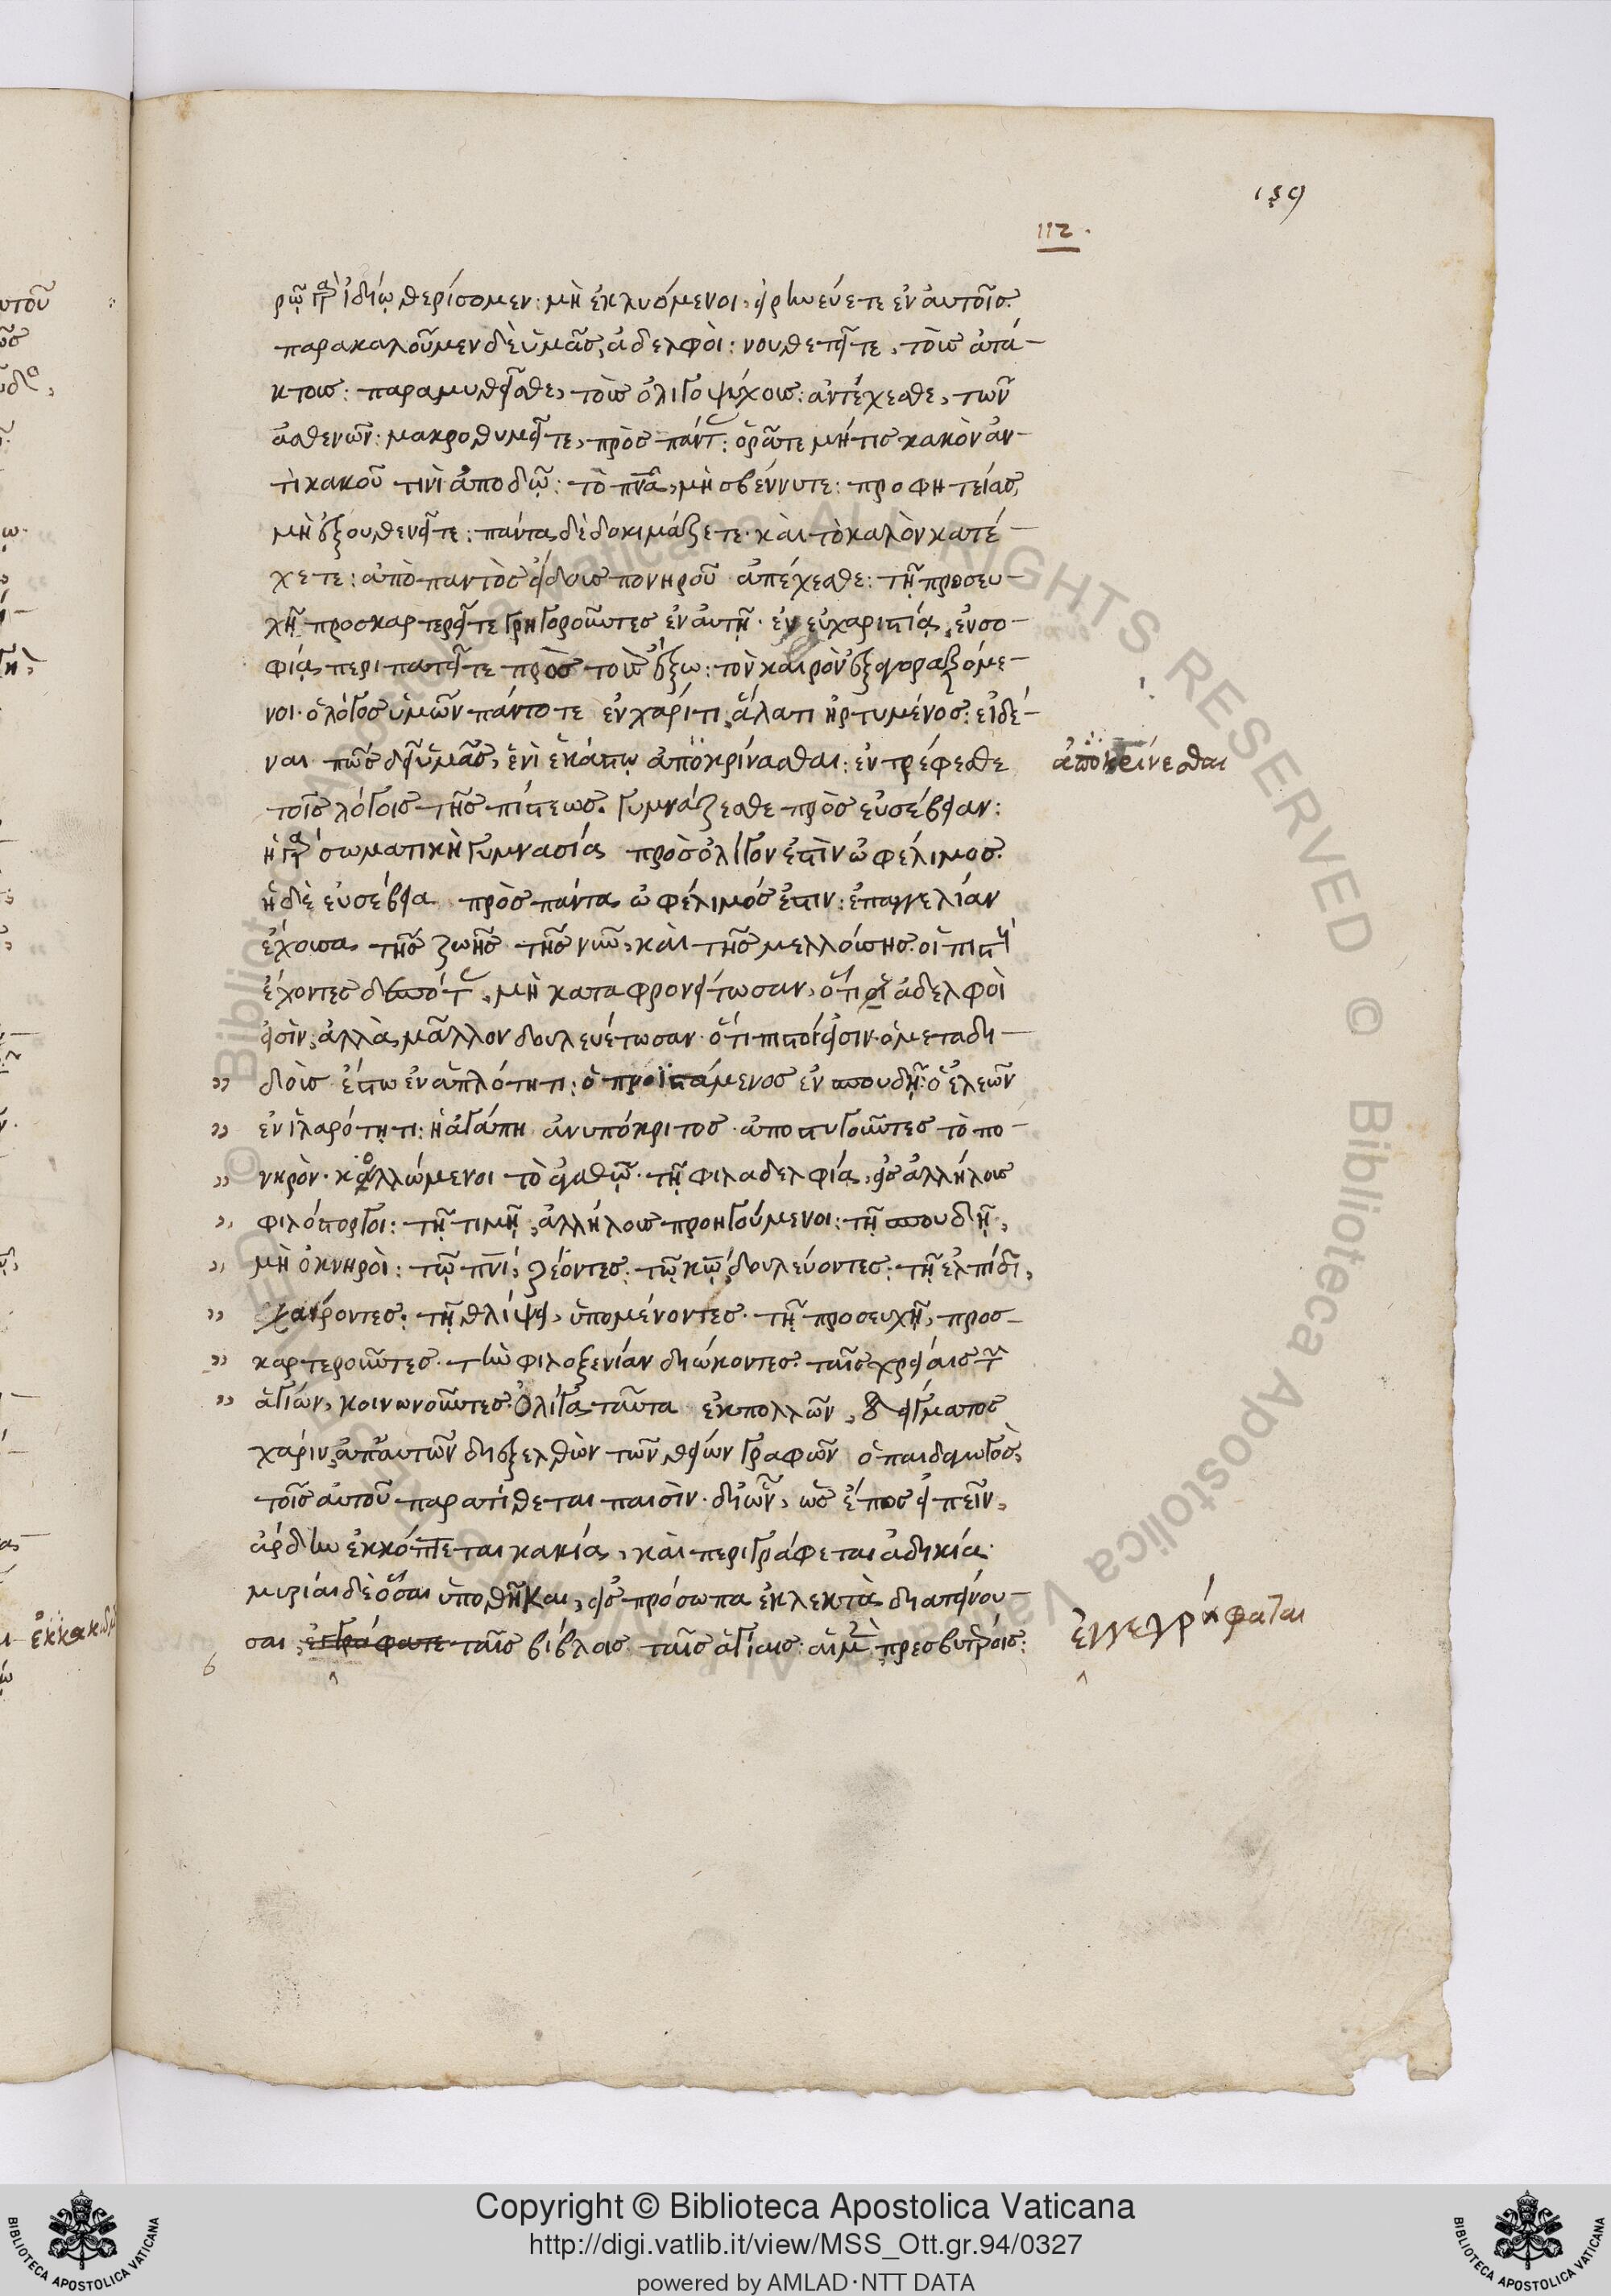 159
112.
ρῷ γὰρ ἰδίῳ θερίσομεν: μὴ ἐκλυόμενοι, εἰρηνεύετε ἐν αὐτοῖς.
παρακαλοῦμεν δὲ ὑμᾶς, ἀδελφοὶ: νουθετεῖτε, τοὺς ἀτά-
κτους: παραμυθεῖσθε, τοὺς ὀλιγοψύχους: ἀντέχεσθε, τῶν
ἀσθενῶν: μακροθυμεῖτε, πρὸς πάντας: ὁρᾶτε μήτις κακὸν ἀν-
τὶ κακοῦ τινὶ ἀποδῷ: τὸ πνα, μὴ σβέννυτε: προφητείας,
μὴ ἐξουθενεῖτε: πάντα δὲ δοκιμάζετε· καὶ τὸ καλὸν κατέ-
χετε: ἀπὸ παντὸς εἴδους πονηροῦ ἀπέχεσθε: τῇ προσευ-
χῇ προσκαρτερεῖτε γρηγοροῦντες ἐν αὐτῇ· ἐν εὐχαριστίᾳ, ἐν σο-
φίᾳ περιπατεῖτε πρὸς τοὺς ἔξω: τὸν καιρὸν ἐξαγοραζόμε-
νοι· ὁ λόγος ὑμῶν πάντοτε ἐν χάριτι, ἅλατι ἠρτυμένος: εἰδέ-
ναι πῶς δεῖ ὑμᾶς, ἑνὶ ἑκάστῳ ἀποκρίνασθαι: ἐντρέφεσθε
ἀποκρίνεσθαι
τοῖς λόγοις τῆς πίστεως. γυμνάζεσθε πρὸς εὐσέβειαν:
ἡ γὰρ σωματικὴ γυμνασία πρὸς ὀλίγον ἐστὶν ὠφέλιμος.
ἡ δὲ εὐσέβεια πρὸς πάντα ὠφέλιμός ἐστιν: ἐπαγγελίαν
ἔχουσα τῆς ζωῆς τῆς νῦν, καὶ τῆς μελλούσης. οἱ πιστοὺς
ἔχοντες δεσπότας, μὴ καταφρονείτωσαν, ὅτι οἱ ἀδελφοὶ
εἰσὶν, ἀλλὰ μᾶλλον δουλευέτωσαν· ὅτι πιστοί εἰσιν· ὁ μεταδι-
δοὺς ἔστω ἐν ἁπλότητι: ὁ προϊστάμενος ἐν σπουδῇ: ὁ ἐλεῶν
ἐν ἱλαρότητι: ἡ ἀγάπη ἀνυπόκριτος· ἀποστυγοῦντες τὸ πο-
νηρὸν· κολλώμενοι τὸ ἀγαθῷ· τῇ φιλαδελφίᾳ, εἰς ἀλλήλους
φιλόστοργοι: τῇ τιμῇ, ἀλλήλους προηγούμενοι: τῇ σπουδῇ,
μὴ ὀκνηροὶ: τῷ πνι, ζέοντες: τῷ κῳ, δουλεύοντες: τῇ ἐλπίδι,
χαίροντες: τῇ θλίψει, ὑπομένοντες· τῇ προσευχῇ, προσ-
καρτεροῦντες· τὴν φιλοξενίαν διώκοντες· ταῖς χρείαις τῶν
ἁγίων, κοινωνοῦντες· Ὀλίγα ταῦτα ἐκ πολλῶν, δείγματος
χάριν, ἀπ' αὐτῶν διεξελθὼν τῶν θείων γραφῶν ὁ παιδαγωγὸς,
τοῖς αὐτοῦ παρατίθεται παισὶν· δι' ὧν, ὡς ἔπος εἰπεῖν,
ἄρδην ἐκκόπτεται κακία, καὶ περιγράφεται ἀδικία·
μυρίαι δὲ ὅσαι ὑποθῆκαι, εἰς πρόσωπα ἐκλεκτὰ διατείνου-
σαι, ἐγγράφατε ταῖς βίβλοις ταῖς ἁγίαις: αἱ μὲν πρεσβυτέροις:
ἐγγεγράφαται
Copyright © Biblioteca Apostolica Vaticana
http://digi.vatlib.it/view/MSS_Ott.gr.94/0327
powered by AMLAD·NTT DATA